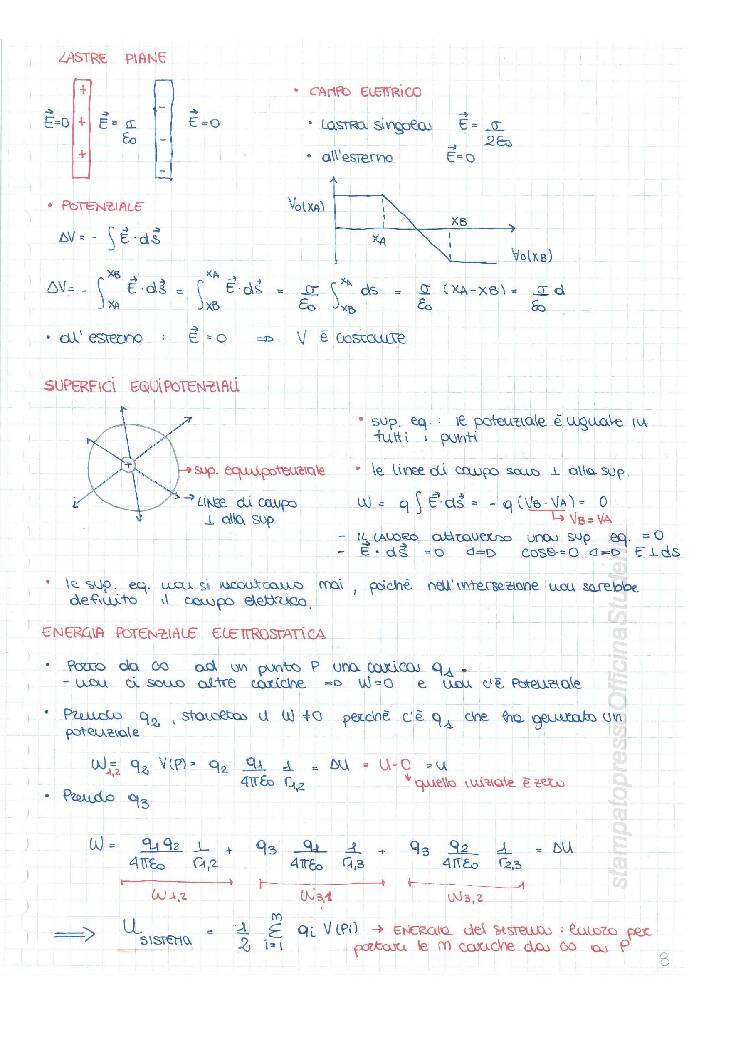 LASTRE PIANE
+ + +
- - -
E⃗=0 E⃗=σ/ε0 E⃗=0
• CAMPO ELETTRICO
• LASTRA singola E⃗=σ/2ε0
• all'esterno E⃗=0
• POTENZIALE
ΔV = - ∫ E⃗·dS⃗
V0(XA) XA XB V0(XB)
ΔV = - ∫_XA^XB E⃗·dS⃗ = ∫_XB^XA E⃗·dS⃗ = σ/ε0 ∫_XB^XA ds = σ/ε0 (XA-XB) = σ/ε0 d
• all'esterno : E⃗=0 ⇒ V è costante
SUPERFICI EQUIPOTENZIALI
+
→ sup. equipotenziale
→ LINEE di campo
⊥ alla sup
• sup. eq. : il potenziale è uguale in
tutti i punti
• le linee di campo sono ⊥ alla sup.
W = q ∫ E⃗·dS⃗ = - q (VB-VA) = 0
↳ VB=VA
- IL LAVORO attraverso una sup eq. = 0
- E⃗·dS⃗ = 0 ⇔ cosθ=0 ⇔ E⊥ds
• le sup. eq. non si incontrano mai, poiché nell'intersezione non sarebbe
definito il campo elettrico.
ENERGIA POTENZIALE ELETTROSTATICA
• Porto da ∞ ad un punto P una carica q1.
- non ci sono altre cariche ⇒ W=0 e non c'è Potenziale
• Prendo q2, stavolta il W≠0 perché c'è q1 che ha generato un
potenziale
W1,2 = q2 V(P) = q2 q1/4πε0 1/r1,2 = ΔU = U-0 = U
↳ quello iniziale è zero
• Prendo q3
W = q1q2/4πε0 1/r1,2 + q3 q1/4πε0 1/r1,3 + q3 q2/4πε0 1/r2,3 = ΔU
W1,2 W3,1 W3,2
⟹ U SISTEMA = 1/2 Σ_{i=i}^{m} qi V(Pi) → ENERGIA del sistema : lavoro per
portare le m cariche da ∞ a P
stampatopressoOfficinaStudenti
8